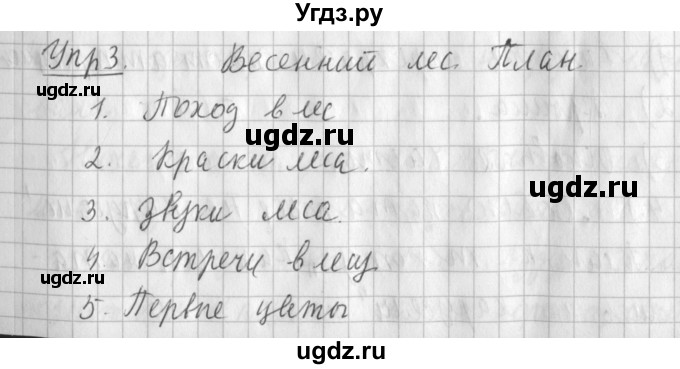 Угдз.ру
Упр3. Весенний лес. План.
ugdz.ru
1. Поход в лес
ugdz.ru ugdz.ru
2. Краски леса.
3. Звуки леса.
4. Встречи в лесу
ugdz.ru
5. Первые цветы
ugdz.ru